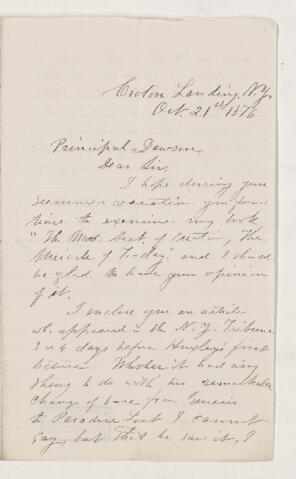 Croton Landing, N.Y.
Oct. 21st 1876
Principal Dawson,
Dear Sir,
I hope during your
summer vacation you found
time to examine my book
"The Mos. Acct. of Creation, The
Miracle of Today," and I should
be glad to have your opinion
of it.
I inclose you an article
wh. appeared in the N.Y. Tribune
3 or 4 days before Huxley's first
lecture. Whether it had any
thing to do with his remarkable
change of base from Genesis
to Paradise Lost I cannot
say, but that he saw it, I